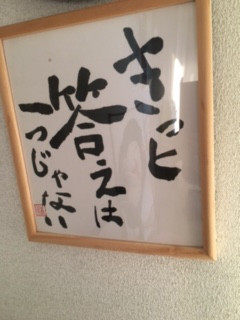 きっと
答えは
一つじゃない